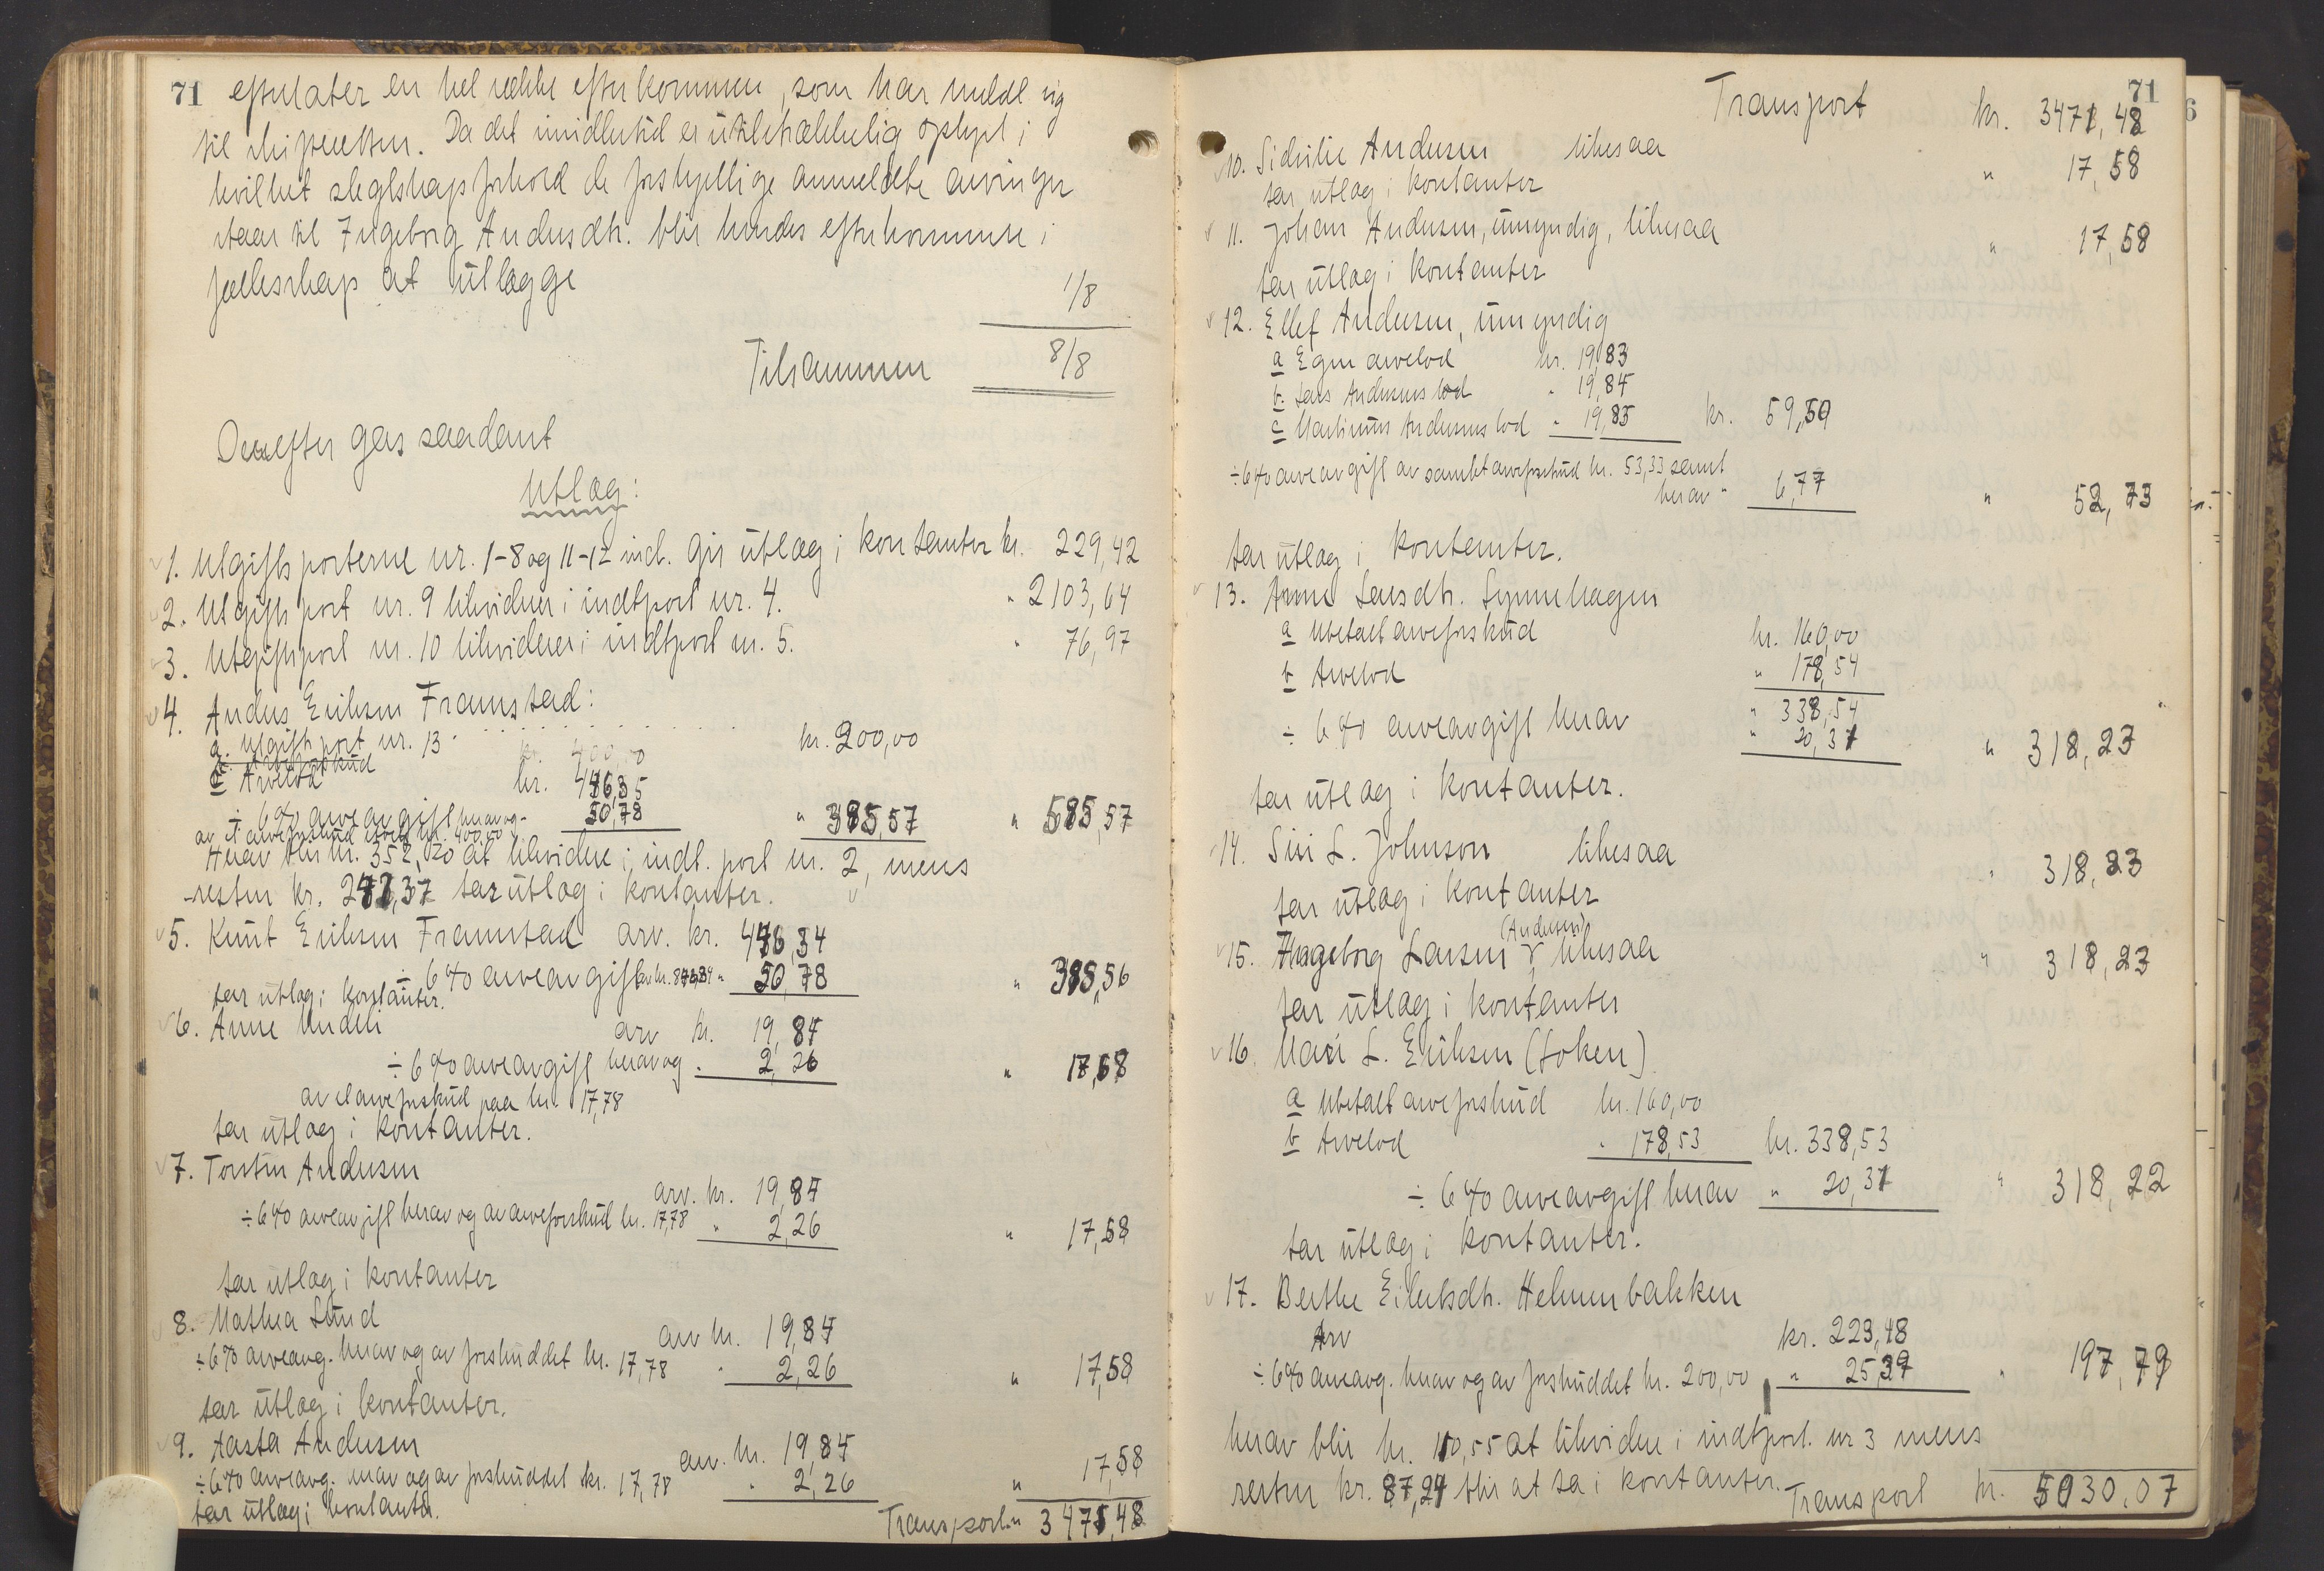 71 efterlater en hel række efterkommere, som har meldt sig
til skifteretten. Da det imidlertid er utilstrækkelig oplyst i
hvilket slegtskapsforhold de forskjellige anmeldte arvinger
staar til Ingeborg Andersdtr. blir hendes efterkommere i
fællesskap at utlægge 1/8
Tilsammen 8/8
Derefter gjøres saadant
Utlæg:
1. Utgiftsposterne nr. 1-8 og 11-12 incl. gis utlæg i kontanter kr. 229,42
2. Utgiftspost nr. 9 likviderer i indtpost nr. 4. " 2103,64
3. Utgiftspost nr. 10 likviderer i indtpost nr. 5. " 76,97
4. Anders Eriksen Framstad:
a. Utgiftspost nr. 13 kr. 200,00
b. Arveforskud kr. 400,00
c Arvelod kr. 446,35
÷ 6% arveavgift herav og 50,78 " 395,57 " 595,57
av et arveforskud stort kr. 400,00
Herav blir kr. 352,20 at likvidere i indt. post nr. 2, mens
resten kr. 243,37 tar utlæg i kontanter.
5. Knut Eriksen Framstad arv. kr. 446,34
÷ 6% arveavgift av kr. 846,34 " 50,78 " 395,56
tar utlæg i kontanter.
6. Anne Undeli arv kr. 19,84
÷ 6% arveavgift herav og " 2,26 " 17,58
av et arveforskud paa kr. 17,78
tar utlæg i kontanter.
7. Torsten Andersen
arv. kr. 19,84
÷ 6% arveavgift herav og av arveforskud kr. 17,78 " 2,26 " 17,58
tar utlæg i kontanter
8. Mathea Lund arv kr. 19,84
÷ 6% arveavg. herav og av forskuddet kr. 17,78 " 2,26 " 17,58
tar utlæg i kontanter.
9. Aasta Andersen arv. kr. 19,84
÷ 6% arveavg. herav og av forskuddet kr. 17,78 " 2,26 " 17,58
tar utlæg i kontanter.
Transport " 3471,48
71
Transport kr. 3471,48
10. Sidsilie Andersen likesaa " 17,58
tar utlæg i kontanter
11. Johan Andersen, umyndig, likesaa " 17,58
tar utlæg i kontanter
12. Ellef Andersen, umyndig
a Egen arvelod kr. 19,83
b. Lars Andersens lod " 19,84
c Martinius Andersens lod " 19,83 kr. 59,50
÷ 6% arveavgift av samlet arveforskud kr. 53,33 samt
herav " 6,77 " 52,73
tar utlæg i kontanter.
13. Anne Larsdtr. Lynnehagen
a Ubetalt arveforskud kr. 160,00
b Arvelod " 178,54
" 338,54
÷ 6% arveavgift herav " 20,31 " 318,23
tar utlæg i kontanter.
14. Siri L. Johnson likesaa " 318,23
tar utlæg i kontanter
(Andersen)
15. Ingeborg Larsen likesaa " 318,23
tar utlæg i kontanter
16. Mari L. Eriksen (Løken)
a Ubetalt arveforskud kr. 160,00
b Arvelod " 178,53 kr. 338,53
÷ 6% arveavgift herav " 20,31 " 318,22
tar utlæg i kontanter.
17. Berthe Eilertsdtr. Helmenbakken
Arv kr. 223,18
÷ 6% arveavg. herav og av forskuddet kr. 200,00 " 25,39 " 197,79
herav blir kr. 110,55 at likvidere i indtpost. nr 3 mens
resten kr. 87,24 blir at ta i kontanter.
Transport kr. 5030,07